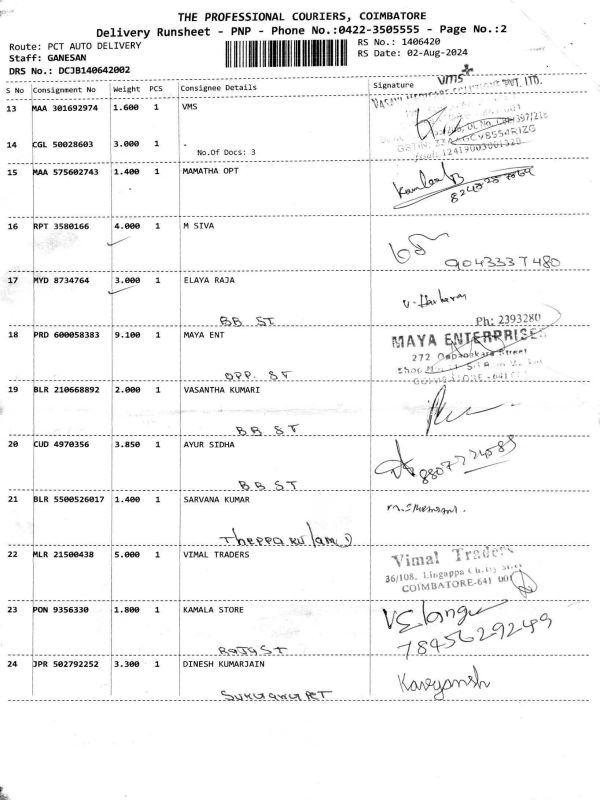 THE PROFESSIONAL COURIERS, COIMBATORE
Delivery Runsheet - PNP - Phone No.:0422-3505555 - Page No.:2
Route: PCT AUTO DELIVERY
RS No.: 1406420
Staff: GANESAN
RS Date: 02-Aug-2024
DRS No.: DCJB140642002
S No Consignment No Weight PCS Consignee Details Signature
VMS
13 MAA 301692974 1.600 1 VMS
14 CGL 50028603 3.000 1 .
No.Of Docs: 3
15 MAA 575602743 1.400 1 MAMATHA OPT
16 RPT 3580166 4.000 1 M SIVA
9043337480
17 MYD 8734764 3.000 1 ELAYA RAJA
BB ST
Ph: 2393280
18 PRD 600058383 9.100 1 MAYA ENT
MAYA ENTERPRISES
272
OPP. ST
19 BLR 210668892 2.000 1 VASANTHA KUMARI
BB ST
20 CUD 4970356 3.850 1 AYUR SIDHA
8807724585
BB ST
21 BLR 5500526017 1.400 1 SARVANA KUMAR
Theppakulam
22 MLR 21500438 5.000 1 VIMAL TRADERS
Vimal Traders
36/108, Lingappa Chetty Street
COIMBATORE-641 001
23 PON 9356330 1.800 1 KAMALA STORE
VElangu
7845629249
RAJA ST
24 JPR 502792252 3.300 1 DINESH KUMARJAIN
Kavyansh